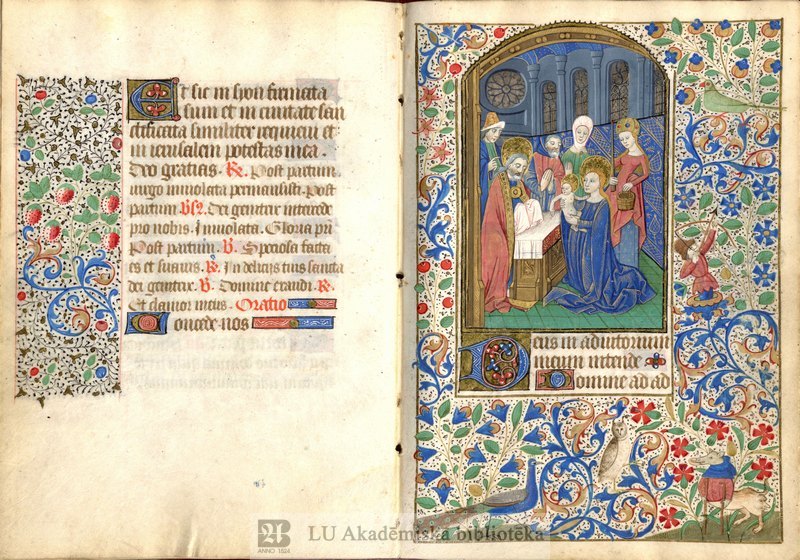 Et sic in syon firmata
sum et in civitate san
ctificata similiter requievi et
in ierusalem potestas mea.
Deo gratias. R. Post partum
virgo inviolata permansisti. Post
partum. Dei genitrix intercede
pro nobis. Inviolata. Gloria pri
Post partum. V. Speciosa facta
es et suavis. R. In deliciis tuis sancta
dei genitrix. V. Domine exaudi. R.
Et clamor meus. Oratio
Concede nos
Deus in adiutorium
meum intende
Domine ad ad
ANNO 1524
LU Akadēmiskā bibliotēka